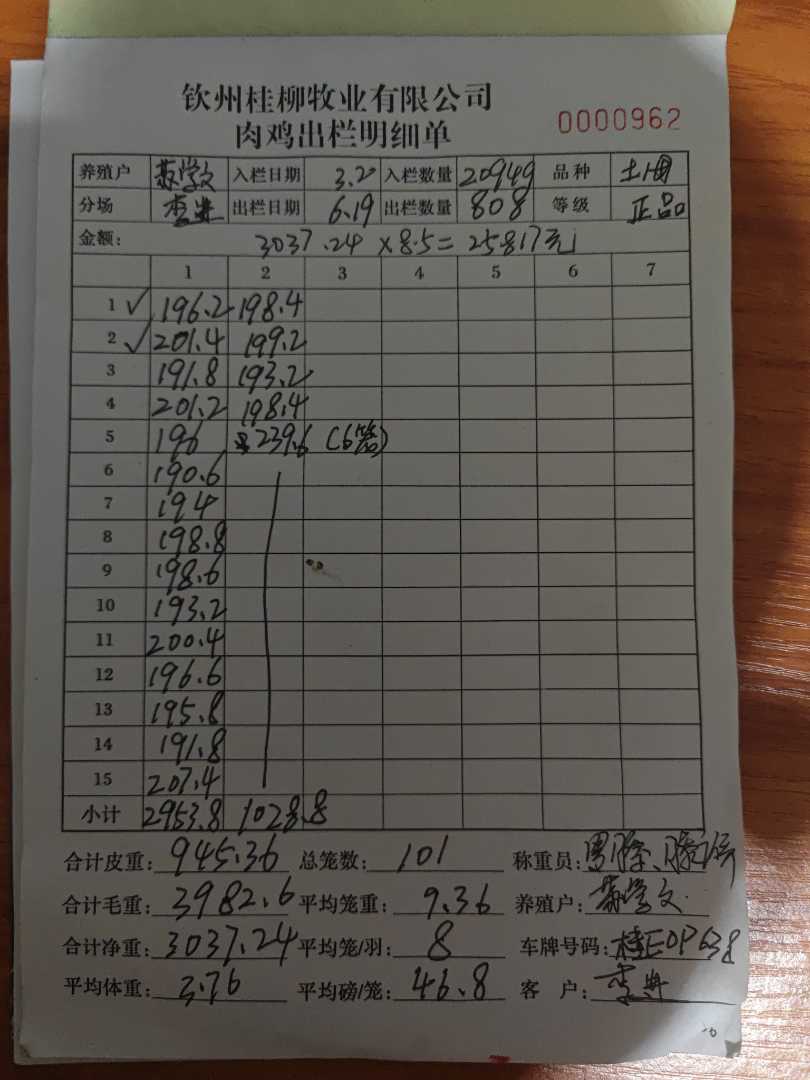 钦州桂柳牧业有限公司
肉鸡出栏明细单 0000962
养殖户 苏学文 入栏日期 3.20 入栏数量 20949 品种 土
分场 出栏日期 6.19 出栏数量 808 等级 正品
金额: 3037.24 x8.5= 25817元
1 2 3 4 5 6 7
1 ✓ 196.2 198.4
2 ✓ 201.4 199.2
3 191.8 193.2
4 201.2 198.4
5 196 239.6 (6笼)
6 190.6
7 194
8 198.8
9 198.6
10 193.2
11 200.4
12 196.6
13 195.8
14 191.8
15 207.4
小计 2953.8 1028.8
合计皮重: 945.36 总笼数: 101 称重员:
合计毛重: 3982.6 平均笼重: 9.36 养殖户: 苏学文
合计净重: 3037.24 平均笼/羽: 8 车牌号码: 桂E0P638
平均体重: 3.76 平均磅/笼: 46.8 客 户: